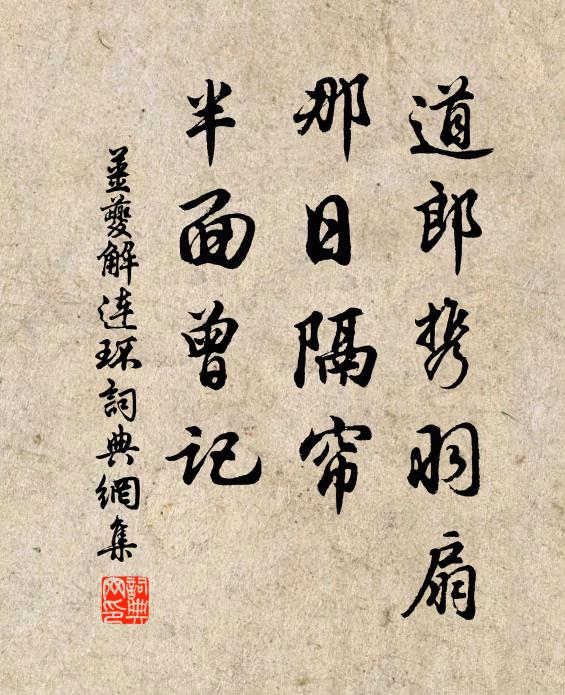 道郎携羽扇
那日隔帘
半面曾记
姜夔解连环詞典網集
詞典網印